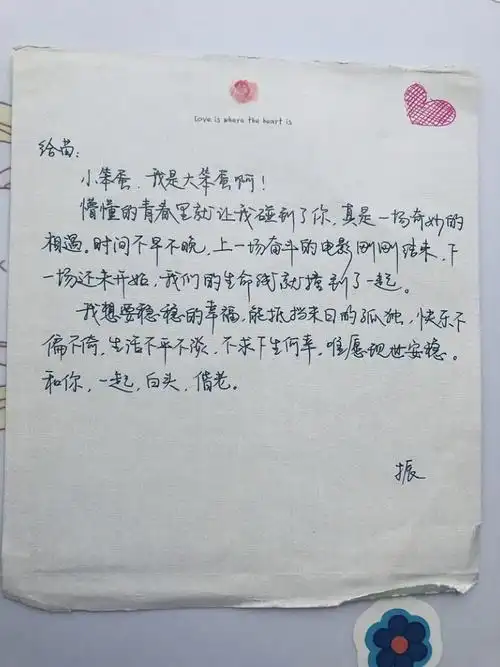 Love is where the heart is
给苗:
小笨蛋,我是大笨蛋啊!
懵懂的青春里就让我碰到了你,真是一场奇妙的
相遇。时间不早不晚,上一场奋斗的电影刚刚结束,下
一场还未开始,我们的生命线就撞到了一起。
我想要稳稳的幸福,能抵挡来日的孤独,快乐不
偏不倚,生活不平不淡,不求下生何幸,唯愿现世安稳。
和你,一起,白头,偕老。
振